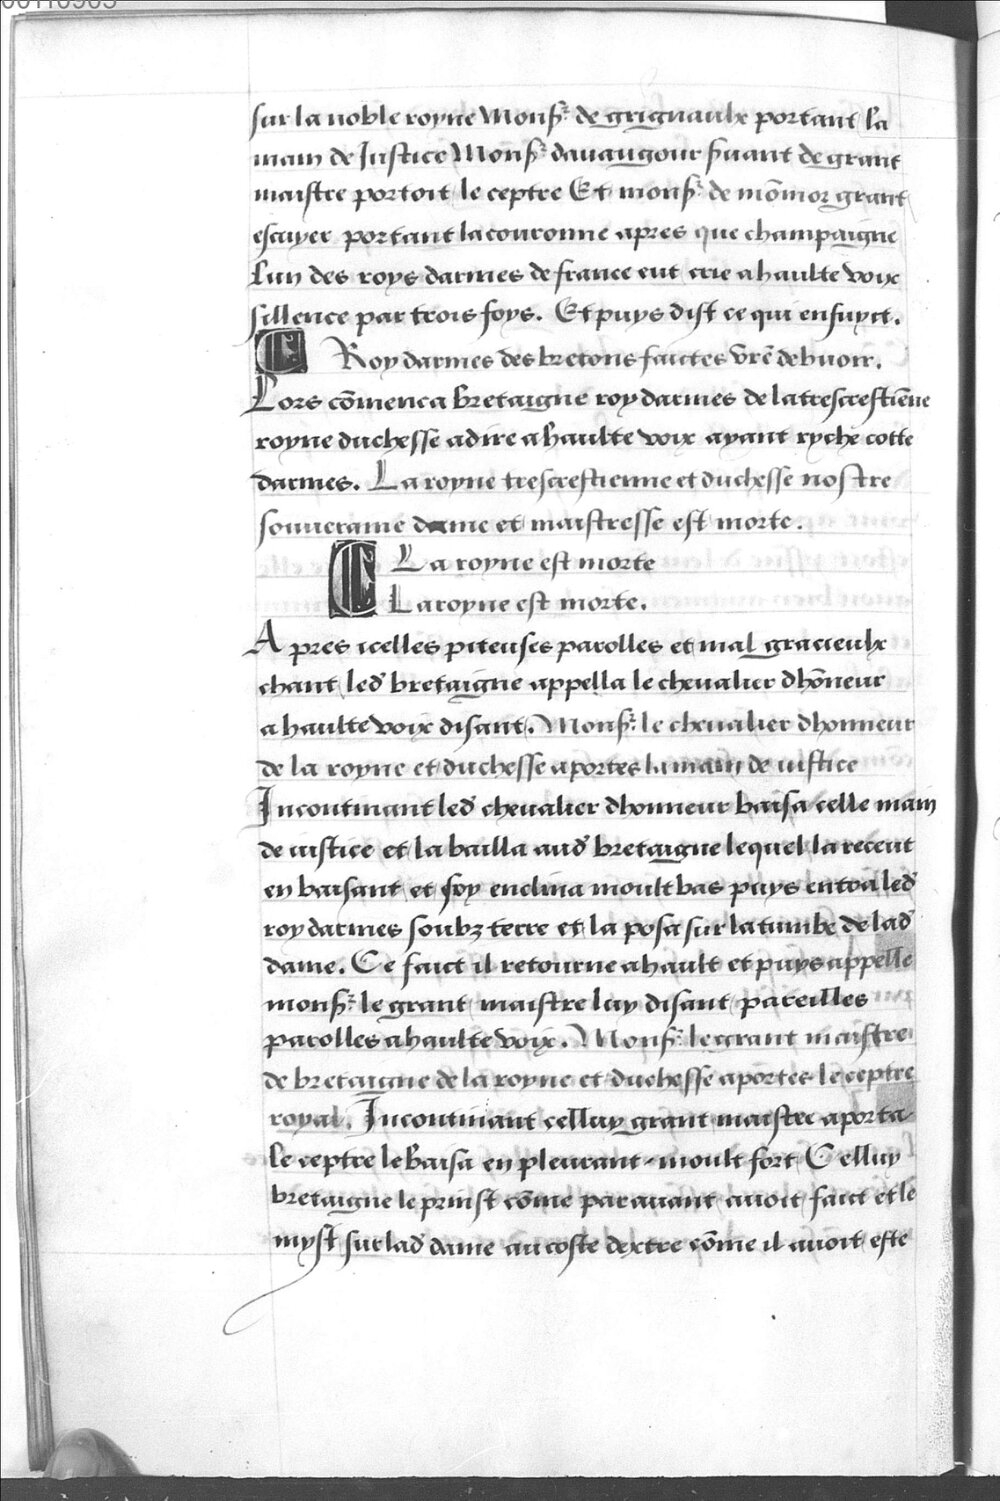 sur la noble royne Monsr de grignaulx portant la
main de Justice Monsr davaugour svant de grant
maistre portoit le ceptre Et monsr de mōmor grant
escuyer portant la couronne apres que champaigne
lun des roys darmes de france eut crie a haulte voix
sillence par trois foys. Et puys dist ce qui ensuyt.
Roy darmes des bretons faictes vrē debuoir.
Lors cōmenca bretaigne roy darmes de la trescrestiēne
royne duchesse a dire a haulte voix ayant ryche cotte
darmes. La royne trescrestienne et duchesse nostre
souueraine dame et maistresse est morte.
La royne est morte
La royne est morte.
Apres icelles piteuses parolles et mal gracieulx
chant led bretaigne appella le cheualier dhōneur
a haulte voix disant. Monsr le cheualier dhonneur
de la royne et duchesse aportes la main de iustice
Incontinant led cheualier dhonneur baisa celle main
de iustice et la bailla aud bretaigne lequel la receut
en baisant et soy enclina moult bas puys entra led
roy darmes soubz terre et la posa sur la tumbe de lad
dame. Ce faict il retourne a hault et puys appelle
monsr le grant maistre luy disant pareilles
parolles a haulte voix. Monsr le grant maistre
de bretaigne de la royne et duchesse aportes le ceptre
royal. Incontinant celluy grant maistre aporta
le ceptre le baisa en pleurant moult fort Celluy
bretaigne le prinst cōme parauant auoit faict et le
myst sur lad dame au coste dextre cōme il auoit este